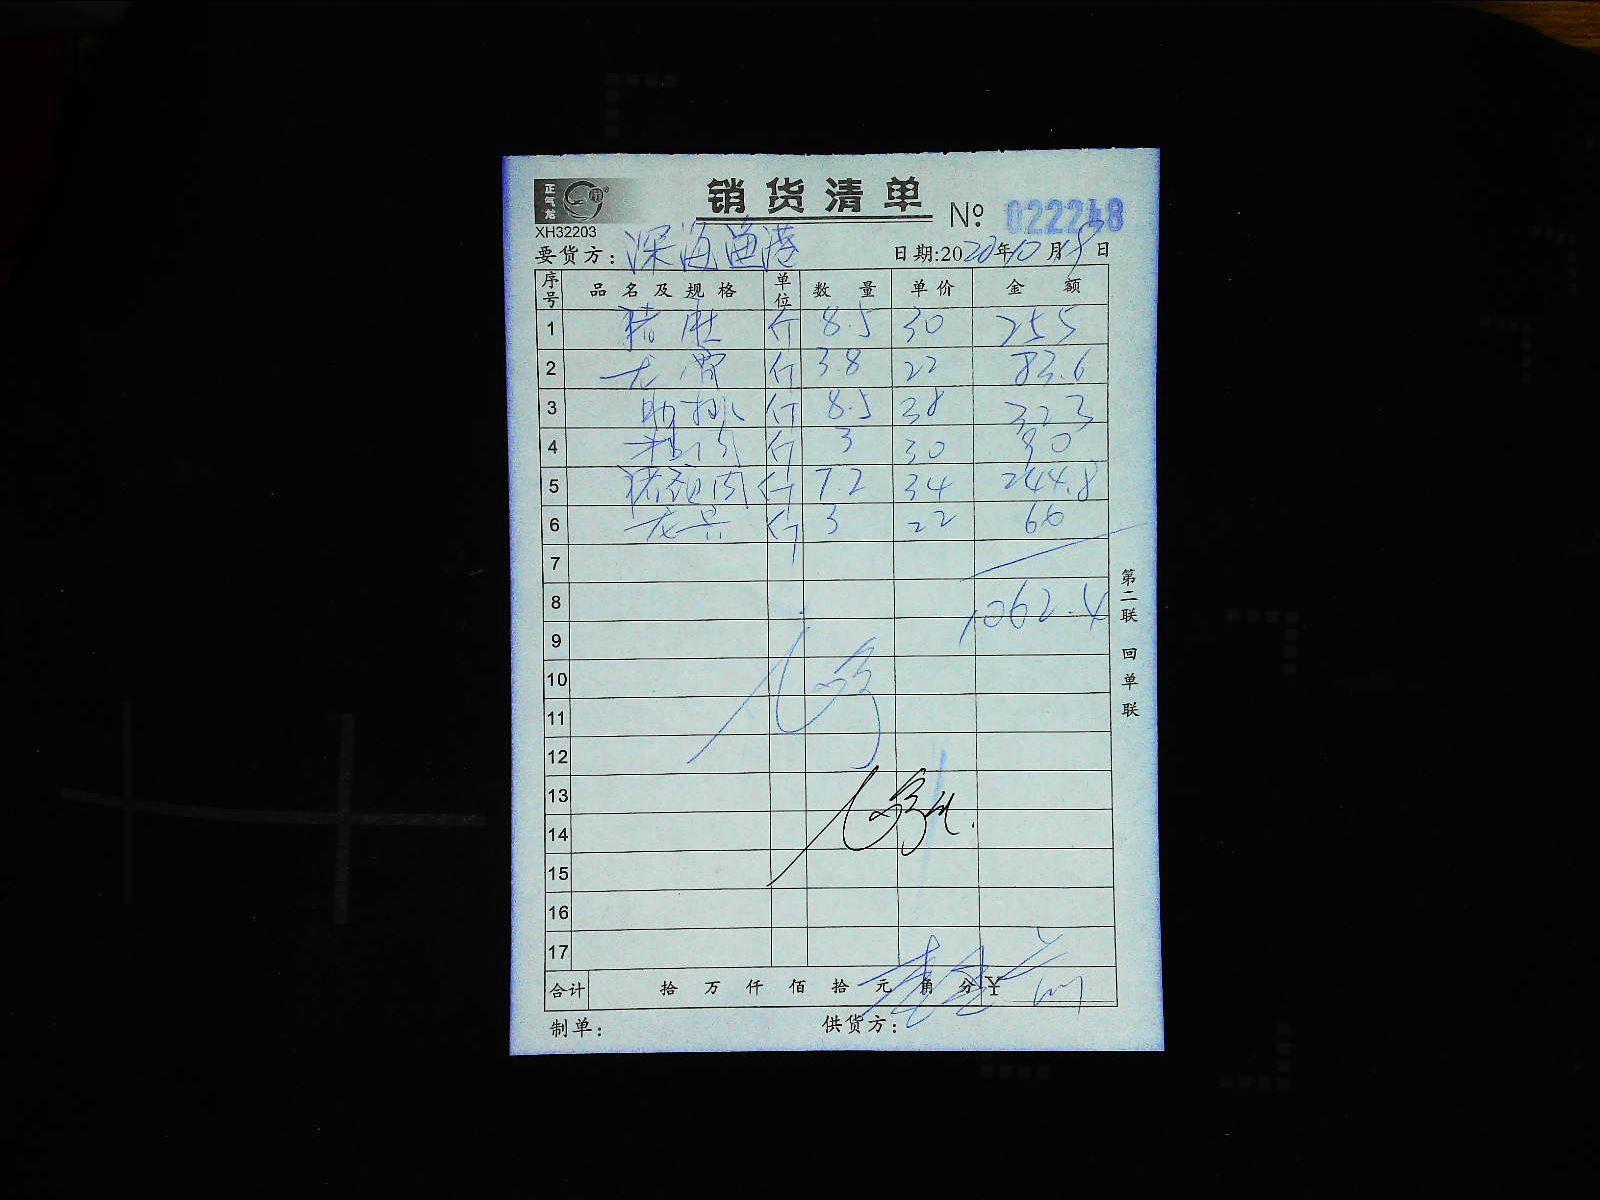 正气龙
销货清单
№ 022248
XH32203
要货方: 深海渔港 日期:2020年10月18日
序号 品名及规格 单位 数量 单价 金额
1 猪肚 斤 8.5 30 255
2 龙骨 斤 3.8 22 83.6
3 肋排 斤 8.5 38 323
4 肉 斤 3 30 90
5 猪颈肉 斤 7.2 34 244.8
6 龙骨 斤 3 22 66
7
8 1062.4
9
10
11
12
13
14
15
16
17
合计 拾万仟佰拾元角分¥
制单: 供货方:
第二联 回单联